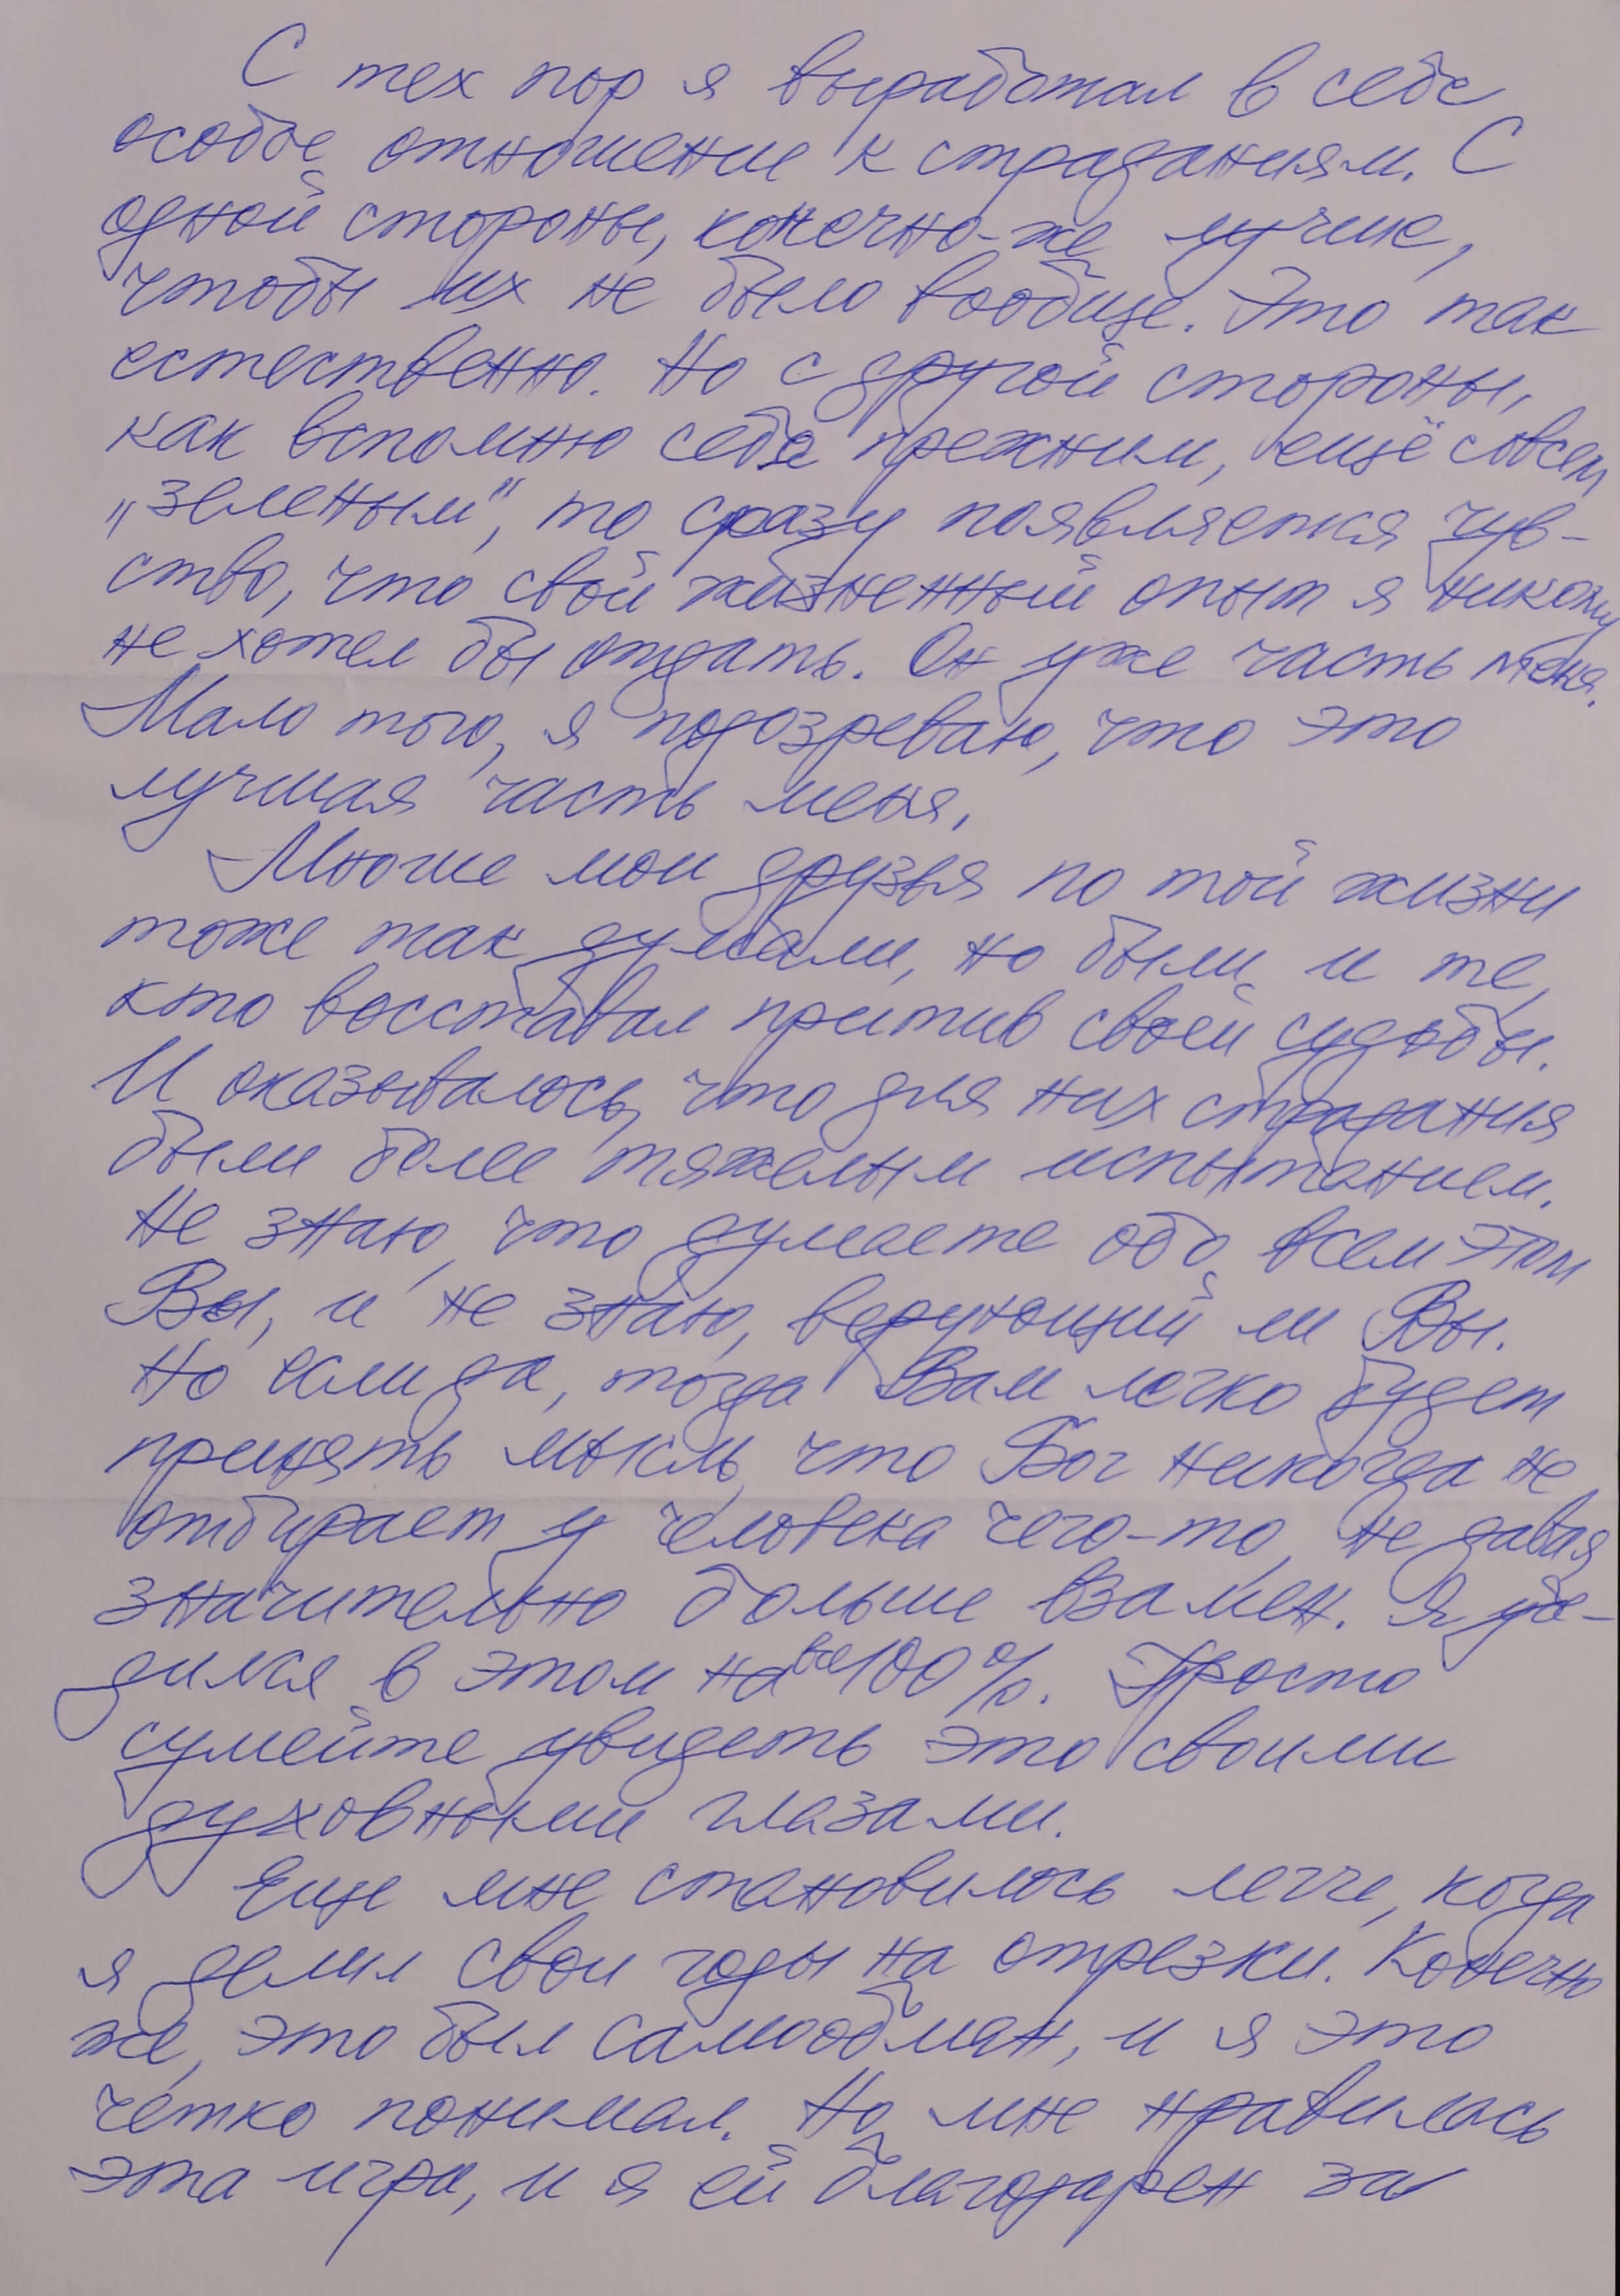 С тех пор я выработал в себе
особое отношение к страданиям. С
одной стороны, конечно-же лучше,
чтобы их не было вообще. Это так
естественно. Но с другой стороны,
как вспомню себя прежним, ещё совсем
„зеленым", то сразу появляется чув-
ство, что свой жизненный опыт я никому
не хотел бы отдать. Он уже часть меня.
Мало того, я подозреваю, что это
лучшая часть меня.
Многие мои друзья по той жизни
тоже так думали, но были и те,
кто восставал против своей судьбы.
И оказывалось, что для них страдания
были более тяжелым испытанием.
Не знаю, что думаете обо всем этом
Вы, и не знаю, верующий ли Вы.
Но если да, тогда Вам легко будет
принять мысль, что Бог никогда не
отбирает у человека чего-то, не давая
значительно больше взамен. Я убе-
дился в этом на все 100%. Просто
сумейте увидеть это своими
духовными глазами.
Еще мне становилось легче, когда
я делил свои годы на отрезки. Конечно
же, это был самообман, и я это
чётко понимал. Но мне нравилась
эта игра, и я ей благодарен за